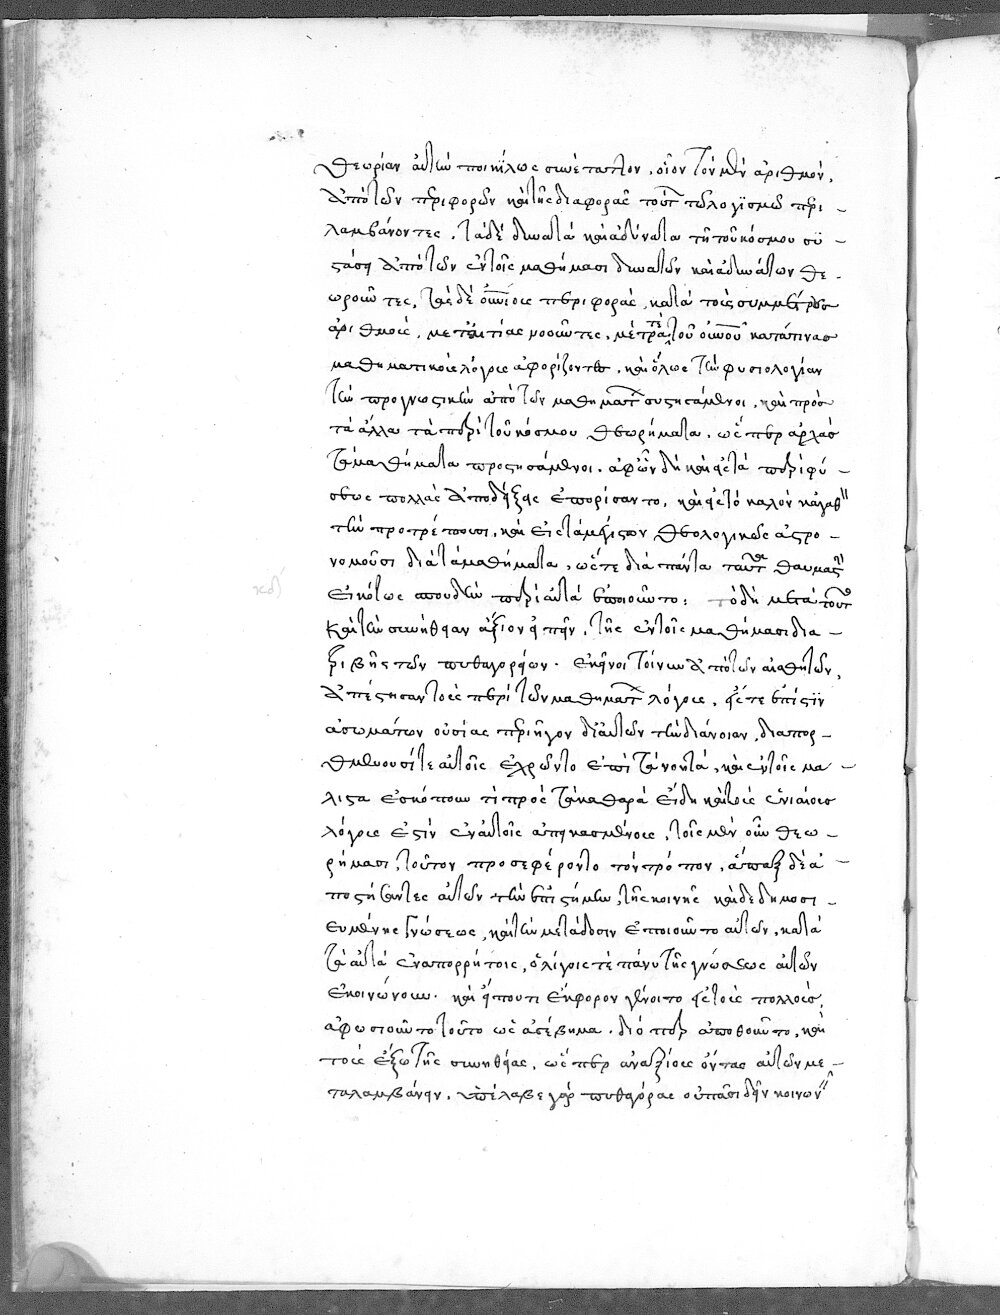 θεωρίαν αὐτῶν ποικίλως συνέταττον. οἷον τὸν μὲν ἀριθμὸν,
ἀπὸ τῶν περιφορῶν καὶ τῆς διαφορᾶς τούτ τῷ λογισμῷ περι-
λαμβάνοντες. τὰ δὲ δυνατὰ καὶ ἀδύνατα τῇ τοῦ κόσμου συ-
στάσει ἀπὸ τῶν ἐν τοῖς μαθήμασι δυνατῶν καὶ ἀδυνάτων θε-
ωροῦντες, τὰς δὲ οὐνίους περιφορὰς, κατὰ τοὺς συμμέτρους
ἀριθμοὺς, μετ' αἰτίας νοοῦντες, μέτρα τὲ τοῦ οὐνοῦ κατά τινας
μαθηματικοὺς λόγους ἀφορίζοντες, καὶ ὅλως τὴν φυσιολογίαν
τὴν προγνωστικὴν ἀπὸ τῶν μαθηματ συστησάμενοι, καὶ πρὸς
τὰ ἄλλα τὰ περὶ τοῦ κόσμου θεωρήματα, ὥσπερ ἀρχὰς
τὰ μαθήματα προστησάμενοι. ἀφ' ὧν δὴ καὶ εἰς τὰ περὶ φύ-
σεως πολλὰς ἀποδείξεις ἐπορίσαντο, καὶ εἰς τὸ καλὸν κἀγαθ
τὴν προτρέπουσι, καὶ εἰς τὰ μέγιστον θεολογικῶς ἀστρο-
νομοῦσι διὰ τὰ μαθήματα, ὥστε διὰ πάντα ταῦτ θαυμαστὴ
εἰκότως σπουδὴν περὶ αὐτὰ ἐποιοῦντο: τὸ δὴ μετὰ τοῦτ
καὶ τὴν συνήθειαν ἄξιον εἰπεῖν, τῆς ἐν τοῖς μαθήμασι δια-
τριβῆς τῶν πυθαγορείων. ἐκεῖνοι τοίνυν ἀπὸ τῶν αἰσθητῶν,
ἀπέστησαν τοὺς περὶ τῶν μαθηματ λόγους, εἴς τε ἐπί τιν
ἀσωμάτων οὐσίας περιῆγον δι' αὐτῶν τὴν διάνοιαν, διαπορ-
θμευούσῃ τε αὐτοῖς ἐχρῶντο ἐπὶ τὰ νοητά, καὶ ἐν τοῖς μα-
λιστα ἐσκόπουν τί πρὸς τὰ καθαρὰ εἴδη καὶ τοὺς ἑνιαίους
λόγους ἐστὶν ἐν αὐτοῖς ἀπεικασμένοις, τοῖς μὲν οὖν θεω-
ρήμασι, τοῦτον προσεφέροντο τὸν τρόπον, ἅπαξ δὲ ἀ-
ποστήσαντες αὐτῶν τὴν ἐπιστήμην, τῆς κοινῆς καὶ δεδημοσι-
ευμένης γνώσεως, καὶ τὴν μετάδοσιν ἐποιοῦντο αὐτῶν, κατὰ
τὰ αὐτὰ ἐν ἀπορρήτοις, ὀλίγοις τὲ πάνυ τῆς γνώσεως αὐτῶν
ἐκοινώνουν. καὶ εἴ που τι ἔκφορον γένοιτο εἰς τοὺς πολλοὺς,
ἀφωσιοῦντο τοῦτο ὡς ἀσέβημα. διό περ ἀπεθοῦντο, καὶ
τοὺς ἔξω τῆς συνηθείας, ὥσπερ ἀναξίους ὄντας αὐτῶν με-
ταλαμβάνειν. ὑπέλαβε γὰρ πυθαγόρας οὐ πᾶσι δεῖν κοινων